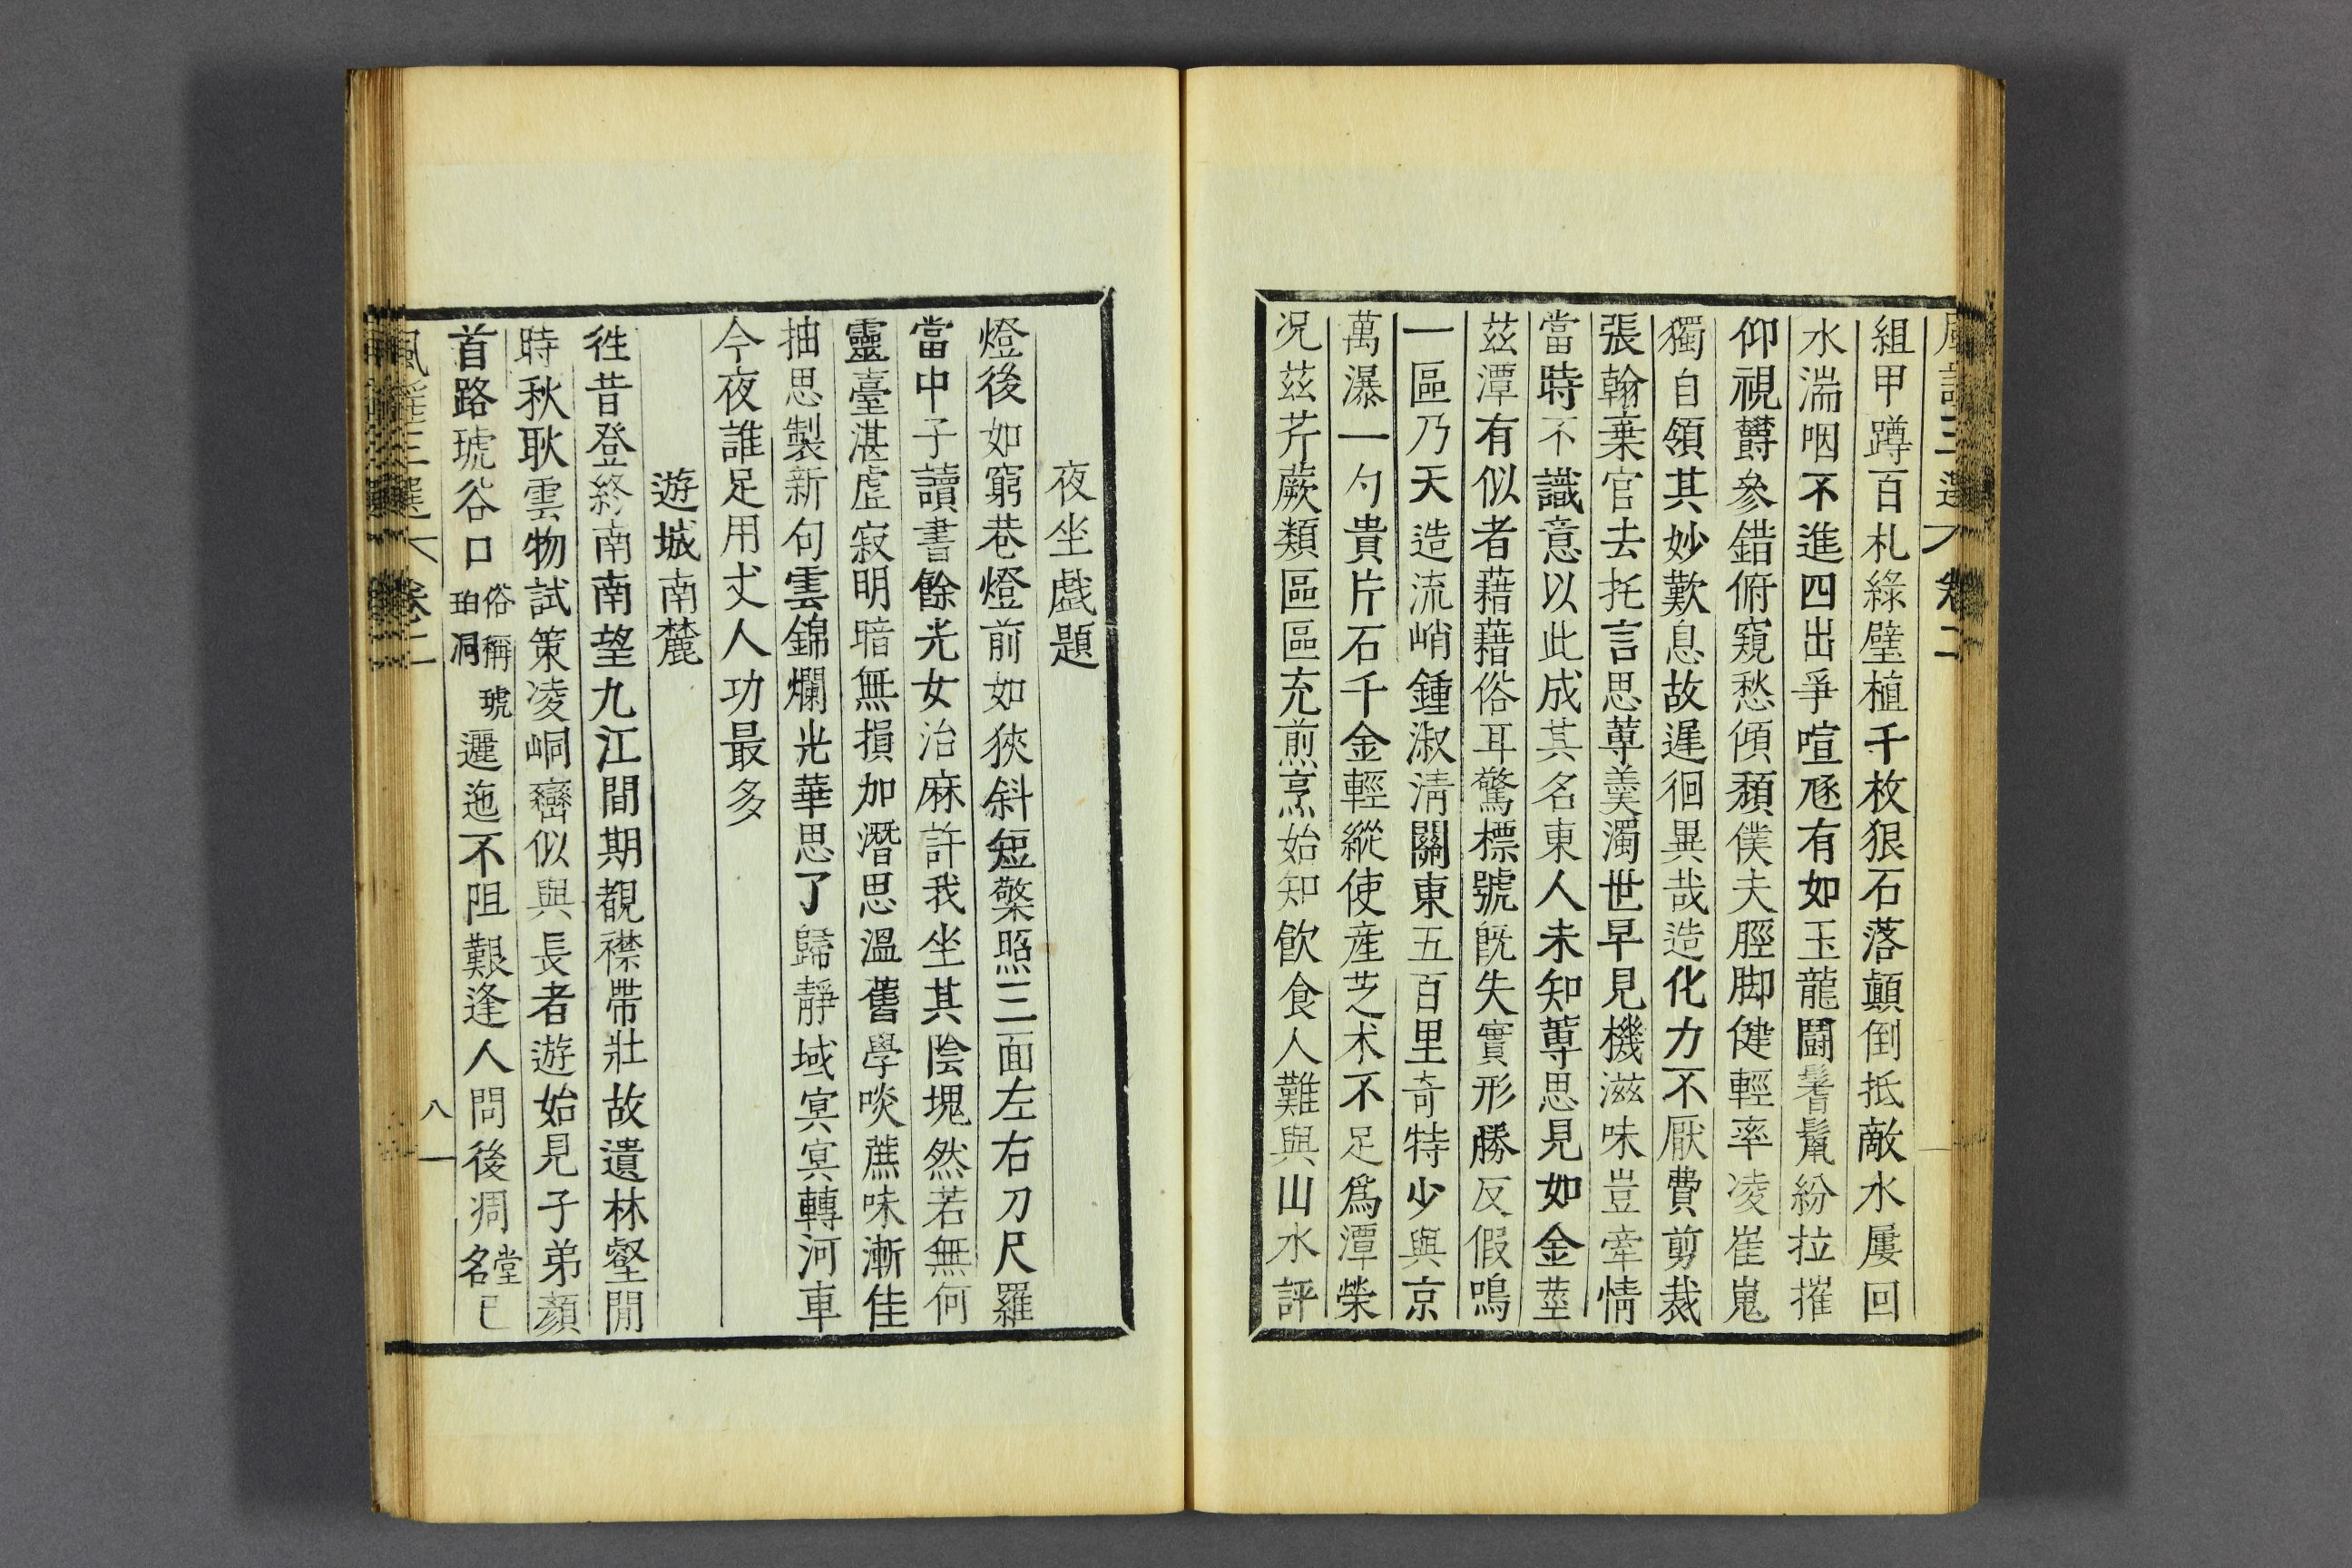 風謠三選 卷二
組甲蹲百札綠壁植千枚狠石落顚倒抵敵水屢回
水湍咽不進四出爭喧豗有如玉龍鬪鬐鬣紛拉摧
仰視欝參錯俯窺愁傾頹僕夫脛脚健輕率凌崔嵬
獨自領其妙歎息故遲徊異哉造化力不厭費剪裁
張翰棄官去托言思蓴羹濁世早見機滋味豈牽情
當時不識意以此成其名東人未知蓴思見如金莖
茲潭有似者藉藉俗耳驚標號旣失實形勝反假鳴
一區乃天造流峭鍾淑淸關東五百里奇特少與京
萬瀑一勺貴片石千金輕縱使産芝朮不足爲潭榮
况茲芹蕨類區區充煎烹始知飮食人難與山水評
夜坐戲題
燈後如窮巷燈前如狹斜短檠照三面左右刀尺羅
當中子讀書餘光女治麻許我坐其陰塊然若無何
靈臺湛虛寂明暗無損加潛思溫舊學啖蔗味漸佳
抽思製新句雲錦爛光華思了歸靜域冥冥轉河車
今夜誰足用丈人功最多
遊城南麓
徃昔登終南南望九江間期覩襟帶壯故遺林壑閒
時秋耿雲物試策凌峒巒似與長者遊始見子弟顏
首路琥谷口俗稱琥珀洞邐迤不阻艱逢人問後凋堂名已
風謠三選 卷二 八一